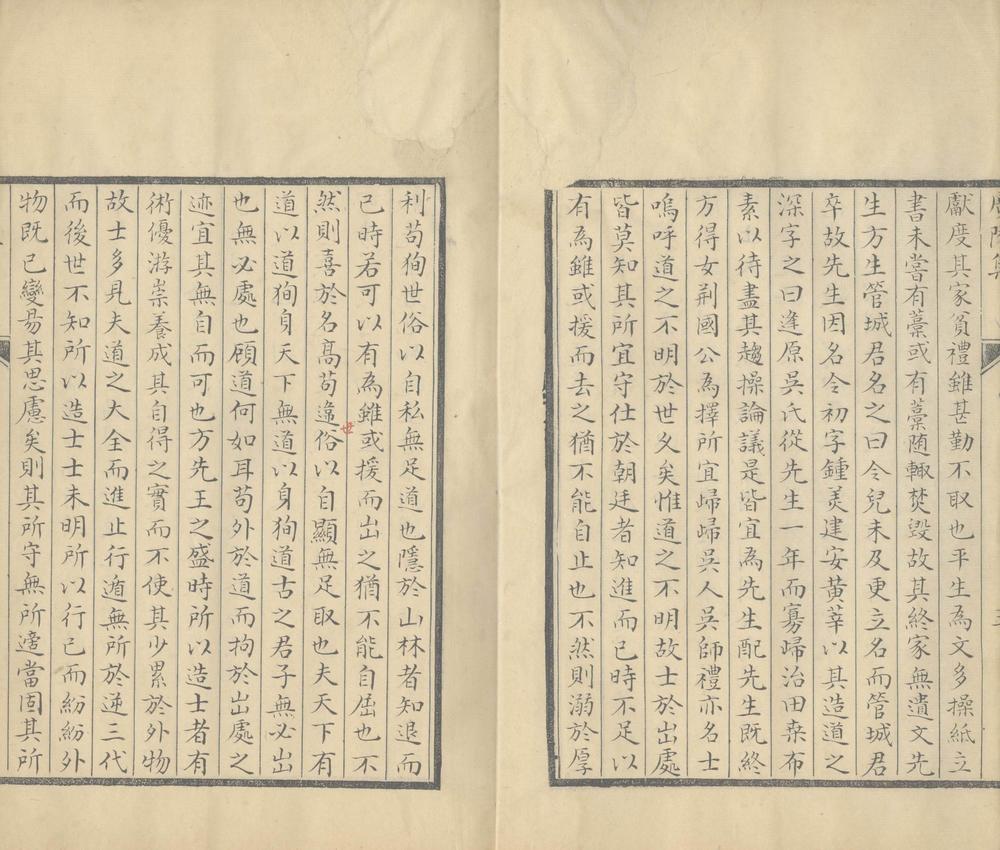 廣陵集
獻度其家貧禮雖甚勤不取也平生為文多操紙立
書未嘗有藁或有藁随輙焚毀故其終家無遺文先
生方生管城君名之曰令兒未及更立名而管城君
卒故先生因名令初字鍾美建安黄莘以其造道之
深字之曰逢原吳氏從先生一年而寡歸治田桒布
素以待盡其趨操論議是皆宜為先生配先生既終
方得女荆國公為擇所宜歸歸吳人吳師禮亦名士
嗚呼道之不明於世乆矣惟道之不明故士於出處
皆莫知其所宜守仕於朝廷者知進而已時不足以
有為雖或援而去之猶不能自止也不然則溺於厚
利苟狥世俗以自私無足道也隱於山林者知退而
已時若可以有為雖或援而出之猶不能自屈也不
然則喜於名髙苟違俗以自顯無足取也夫天下有
世
道以道狥身天下無道以身狥道古之君子無必出
也無必處也顧道何如耳苟外於道而拘於出處之
迹宜其無自而可也方先王之盛時所以造士者有
術優游崇養成其自得之實而不使其少累於外物
故士多見夫道之大全而進止行遁無所於逆三代
而後世不知所以造士士未明所以行己而紛紛外
物既已變昜其思慮矣則其所守無所適當固其所